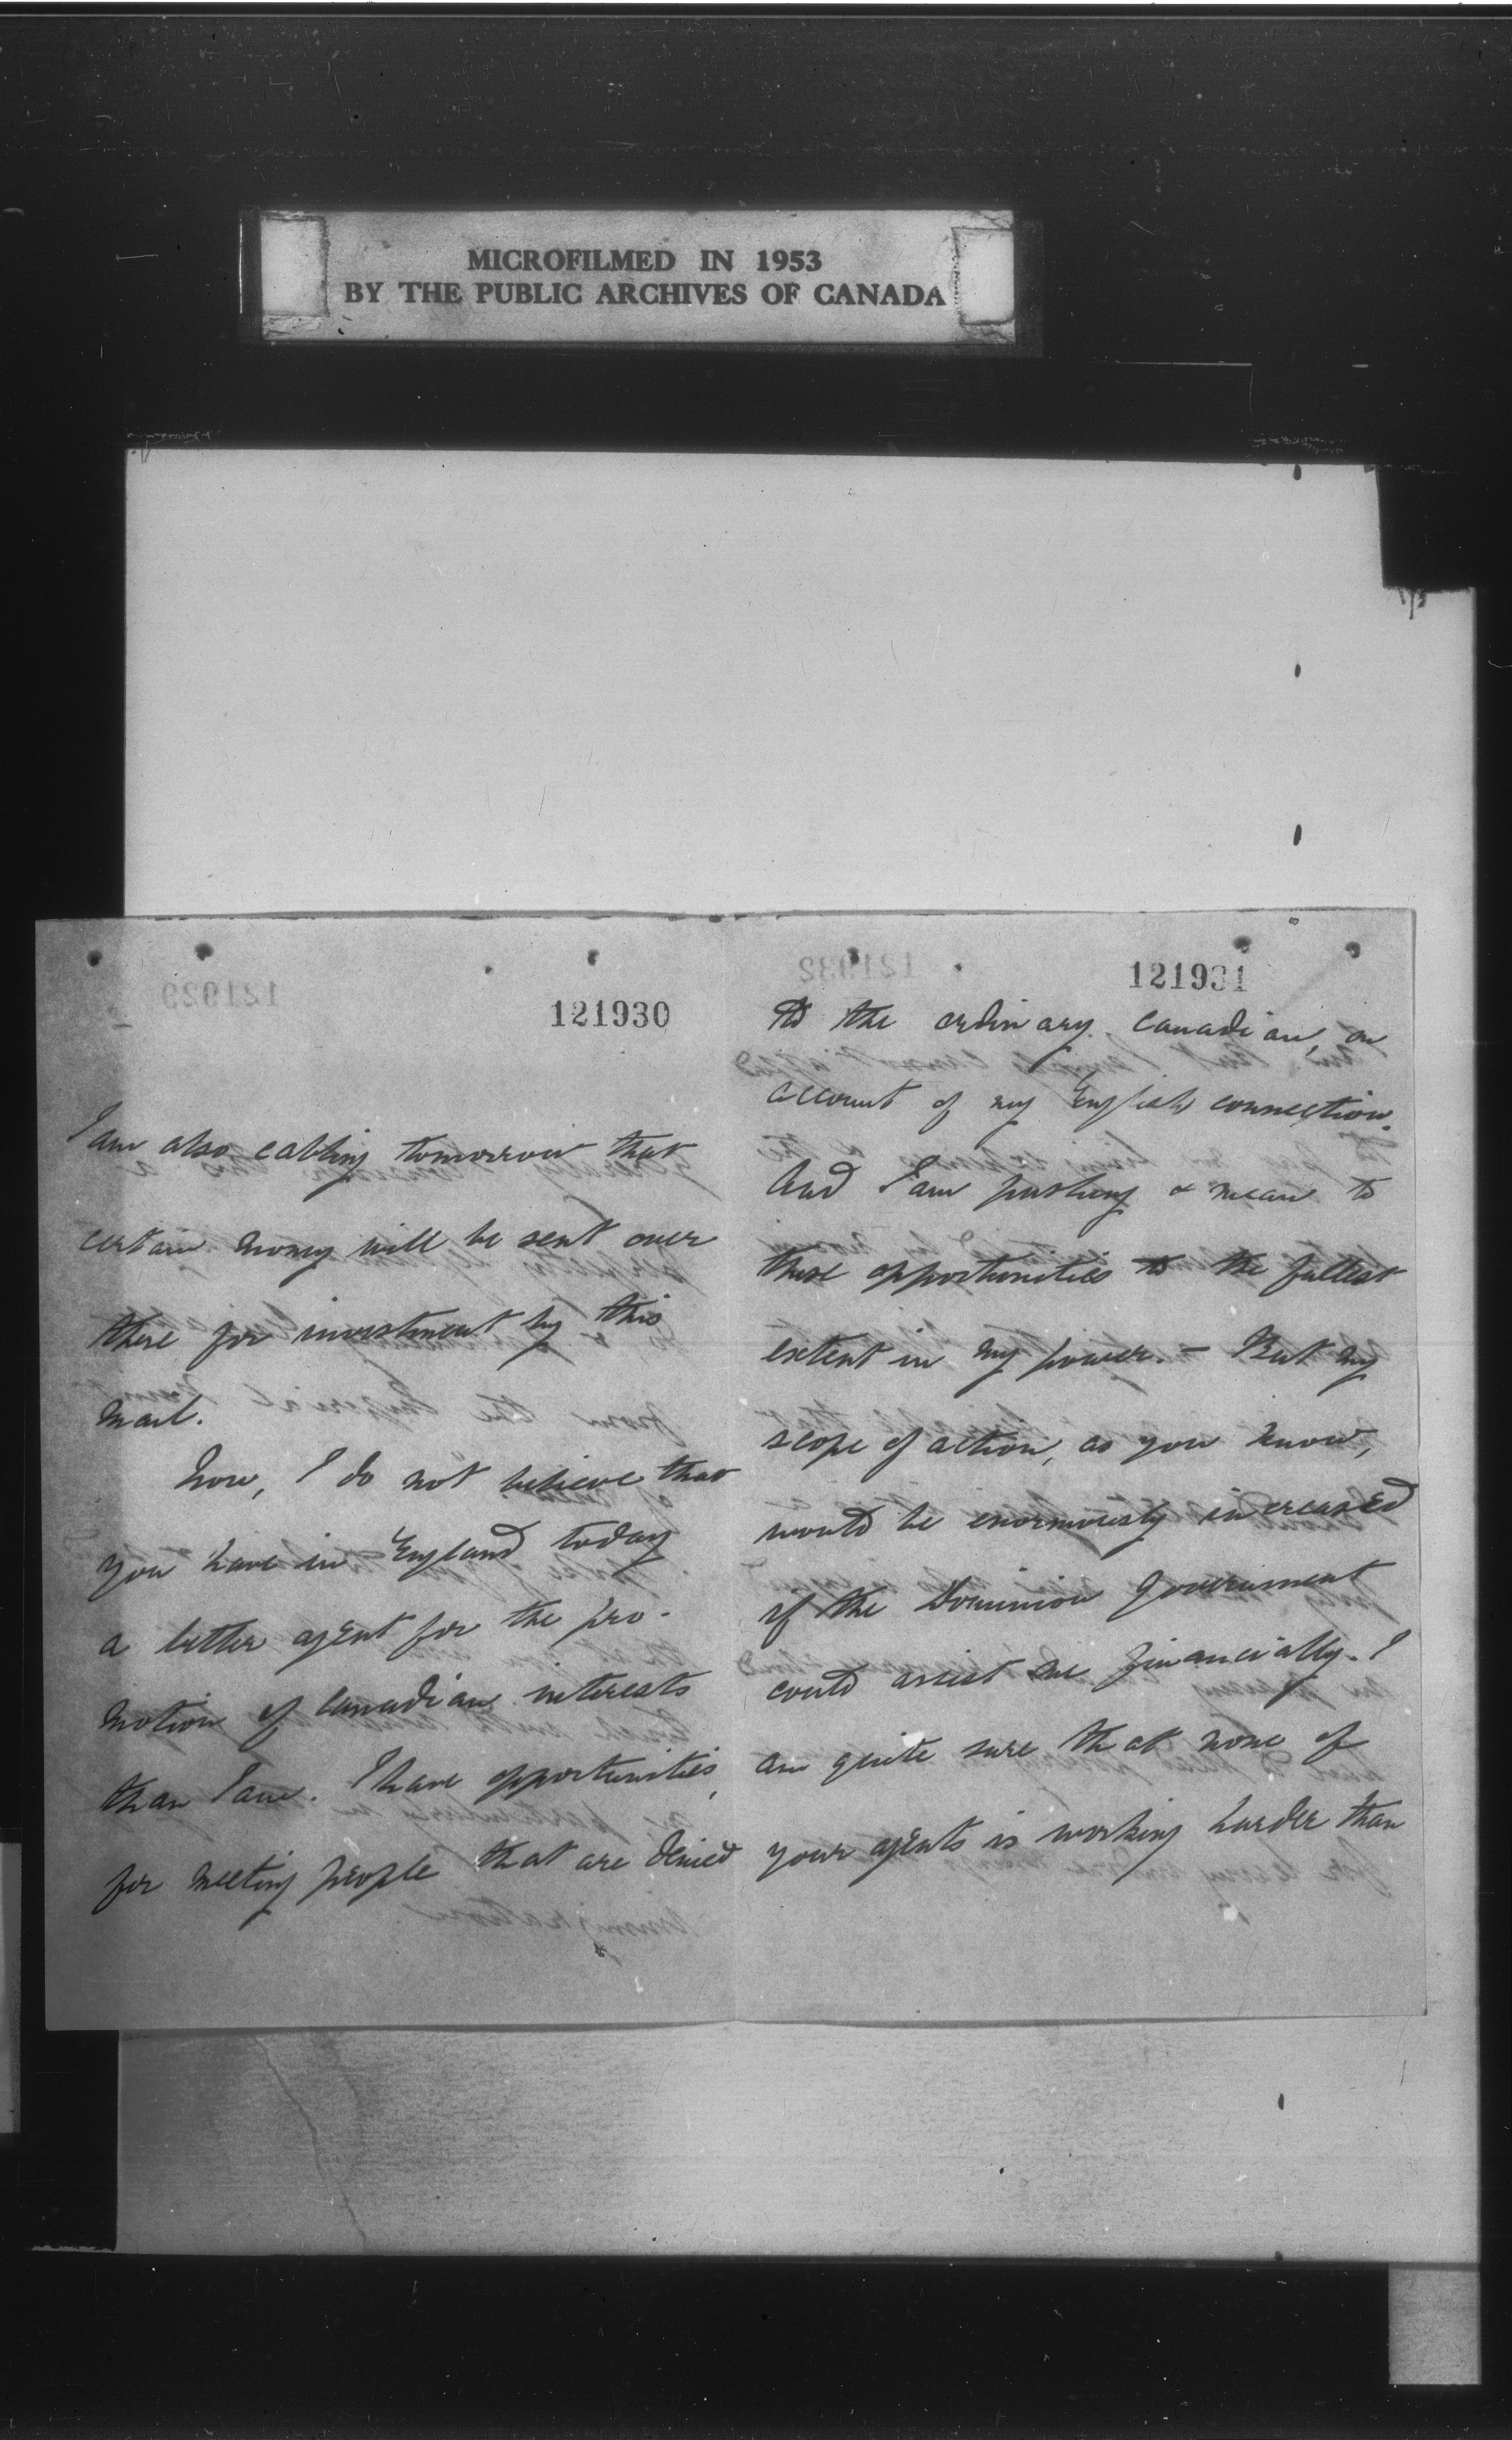 MICROFILMED IN 1953
BY THE PUBLIC ARCHIVES OF CANADA
121930
I am also cabling tomorrow that
certain money will be sent over
there for investment by this
mail.
Now, I do not believe that
you have in England today
a better agent for the pro-
motion of Canadian interests
than I am. I have opportunities,
for meeting people that are denied
121931
to the ordinary Canadian, on
account of my English connection.
And I am pushing & mean to
these opportunities to the fullest
extent in my power. – But my
scope of action, as you know,
would be enormously increased
if the Dominion Government
could assist me financially. I
am quite sure that none of
your agents is working harder than